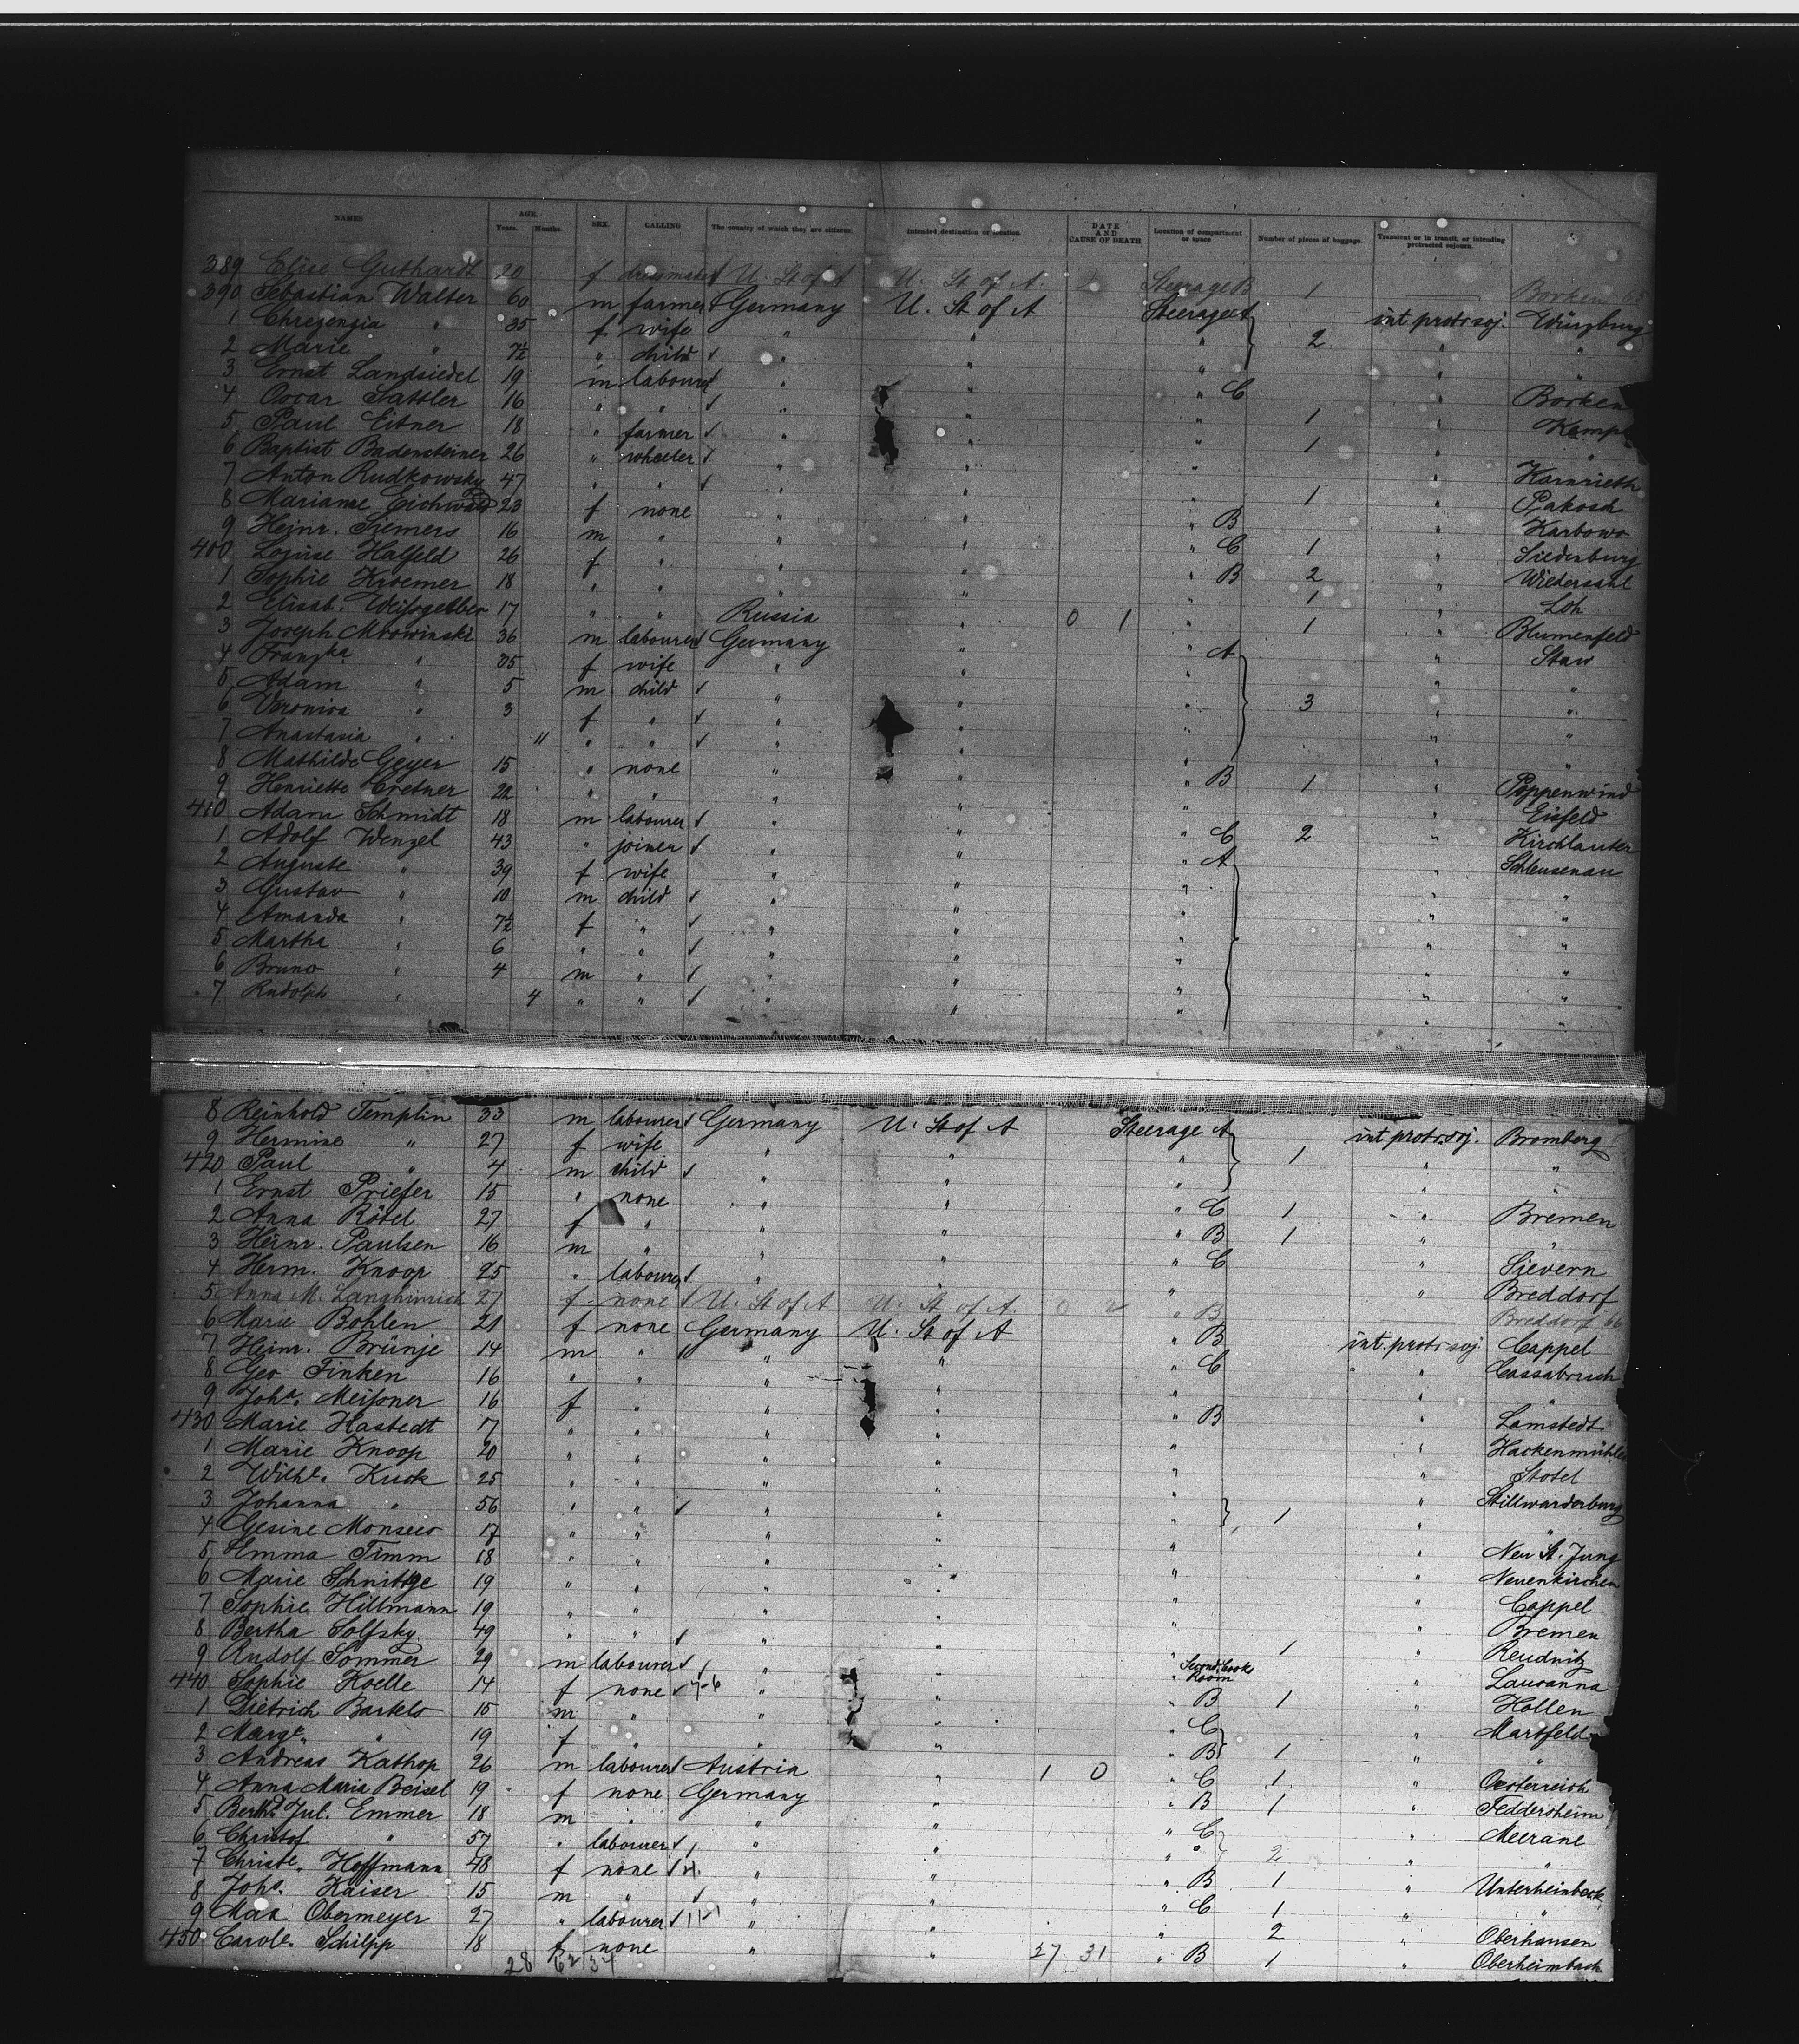 NAMES AGE. Years. Months. SEX. CALLING The country of which they are citizens. Intended destination or location. DATE AND CAUSE OF DEATH Location of compartment or space Number of pieces of baggage. Transient or in transit, or intending protracted sojourn.
389 Elise Guthardt 20 f dressmaker U. St of A U. St of A. Steerage B 1 Borken 65
390 Sebastian Walter 60 m farmer Germany U. St of A Steerage A int protr soj. Würzburg
1 Chrezengia " 35 f wife " " " 2 " "
2 Marie " 7½ " child " " " " "
3 Ernst Landsiedel 19 m labourer " " " C " Borken
4 Oscar Sattler 16 " " " " " 1 "
5 Paul Eitner 18 " farmer " " " 1 "
6 Baptist Badensteiner 26 " wheeler " " " " Karnrieth
7 Anton Rudkowsky 47 " " " " " 1 " Pakosch
8 Marianne Eichwald 23 f none " " " B " Karbowo
9 Heinr. Siemers 16 m " " " " C 1 " Siedenburg
400 Louise Halfeld 26 f " " " " B 2 " Wiedersahl
1 Sophie Kroemer 18 " " " " " 1 " Loh
2 Elisab. Weissgerber 17 " " Russia " 0 1 " 1 " Blumenfeld
3 Joseph Mrowinski 36 m labourer Germany " " A " Staw
4 Franzka " 35 f wife " " " " "
5 Adam " 5 m child " " " 3 " "
6 Veronica " 3 f " " " " " "
7 Anastasia " 11 " " " " " " "
8 Mathilde Geyer 15 " none " " " B 1 " Poppenwind
9 Henriette Cretner 22 " " " " " " Eisfeld
410 Adam Schmidt 18 m labourer " " " C 2 " Kirchlauter
1 Adolf Wenzel 43 " joiner " " " A " Schleusenau
2 Auguste " 39 f wife " " " " "
3 Gustav " 10 m child " " " " "
4 Amanda " 7½ f " " " " " "
5 Martha " 6 " " " " " " "
6 Bruno " 4 m " " " " " "
7 Rudolph " 4 " " " " " " "
8 Reinhold Templin 33 m labourer Germany U. St of A Steerage A int protr. soj. Bromberg
9 Hermine " 27 f wife " " " 1 " "
420 Paul " 4 m child " " " " "
1 Ernst Priefer 15 " none " " " C 1 " Bremen
2 Anna Rötel 27 f " " " " B 1 " "
3 Heinr. Paulsen 16 m " " " " C " Sievern
4 Herm. Knoop 25 " labourer " " " " Breddorf
5 Anna M. Langhinrich 27 f none U. St of A U. St of A. 0 2 " B Breddorf 66
6 Marie Bohlen 21 f none Germany U. St of A " B int. protr soj. Cappel
7 Heinr. Brünje 14 m " " " " C " Cassabruch
8 Geo Tinken 16 " " " " " " "
9 Joha. Meissner 16 f " " " " B " Lamstedt
430 Marie Hastedt 17 " " " " " " Hackenmühlen
1 Marie Knoop 20 " " " " " " Stotel
2 Wilhe. Kuck 25 " " " " " " Stillwarderburg
3 Johanna " 56 " " " " " 1 " "
4 Gesine Monsees 17 " " " " " " Neu St. Jung
5 Emma Timm 18 " " " " " " Neuenkirchen
6 Marie Schnittge 19 " " " " " " Cappel
7 Sophie Hillmann 19 " " " " " " Bremen
8 Bertha Solfsky 49 " " " " " 1 " Reudnitz
9 Rudolf Sommer 29 m labourer " " " Second Cooks Room " Lausanna
440 Sophie Koelle 14 f none " " " B 1 " Hollen
1 Dietrich Bartels 15 m " " " " C " Martfeld
2 Marge. " 19 f " " " " B 1 " "
3 Andreas Kathop 26 m labourer Austria " 1 0 " C 1 " Oesterreich
4 Anna Maria Beisel 19 f none Germany " " B 1 " Feddersheim
5 Berthd. Jul. Emmer 18 m " " " " C " Meerane
6 Christof " 57 " labourer " " " " 2 " "
7 Christe. Hoffmann 48 f none " " " B 1 " Unterheinbeck
8 Johs. Kaiser 15 m " " " " C 1 " "
9 Max Obermeyer 27 " labourer " " " 2 " Oberhausen
450 Carole. Schilpp 18 f none " " 27 31 " B 1 " Oberheimbach
28 62 34